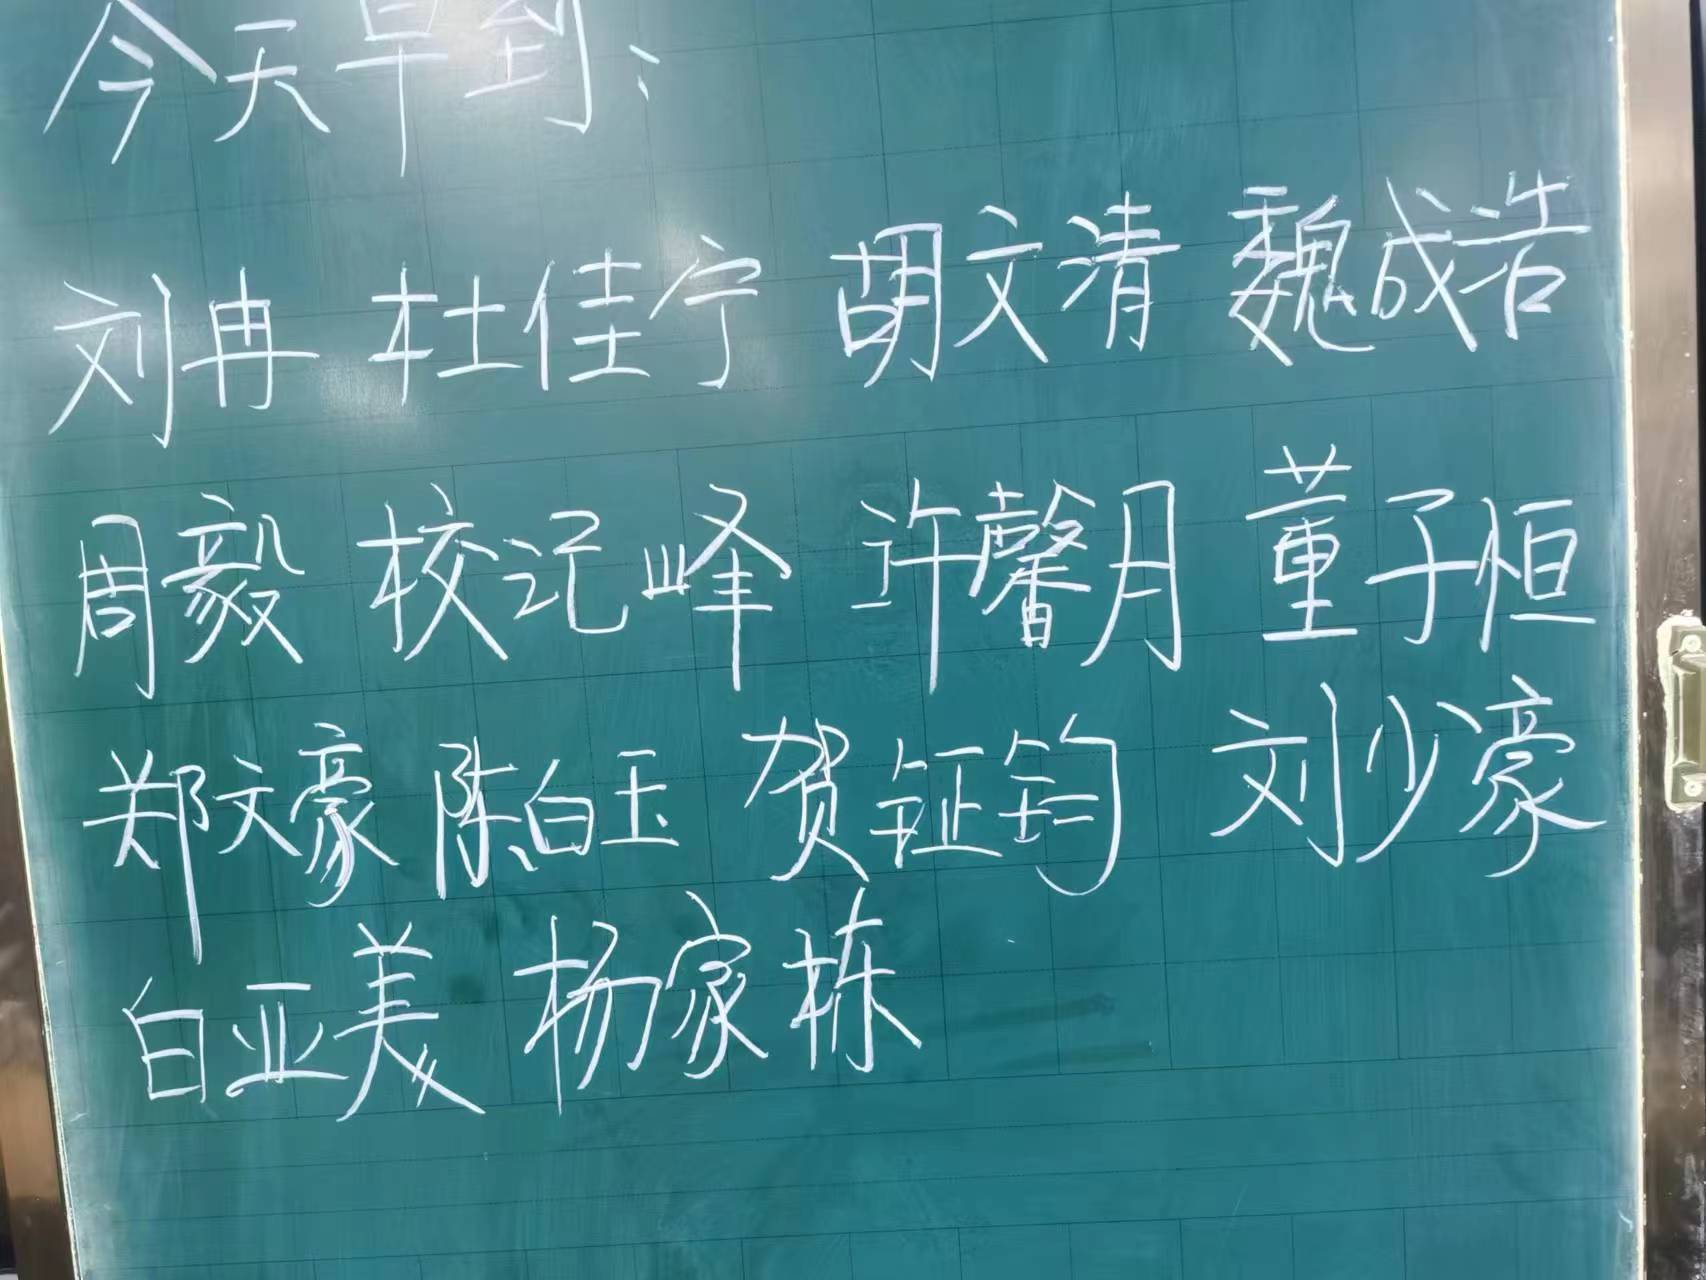 今天早到:
刘冉 杜佳宁 胡文清 魏成浩
周毅 校记峰 许馨月 董子恒
郑文豪 陈白玉 贺钲钧 刘少濠
白亚美 杨家栋